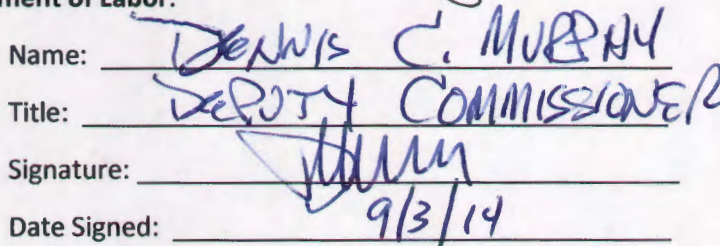 ment of Labor:
Name: DENNIS C. MURPHY
Title: DEPUTY COMMISSIONER
Signature:
Date Signed: 9/3/14